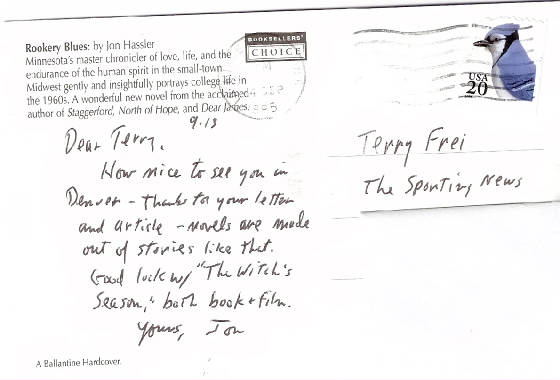 Rookery Blues: by Jon Hassler
Minnesota's master chronicler of love, life, and the
endurance of the human spirit in the small-town
Midwest gently and insightfully portrays college life in
the 1960s. A wonderful new novel from the acclaimed
author of Staggerford, North of Hope, and Dear James.
BOOKSELLERS'
CHOICE
USA
20
9.13
Dear Terry,
How nice to see you in
Denver - thanks for your letter
and article - novels are made
out of stories like that.
Good luck w/ "The Witch's
Season," both book + film.
Yours, Jon
Terry Frei
The Sporting News
A Ballantine Hardcover.